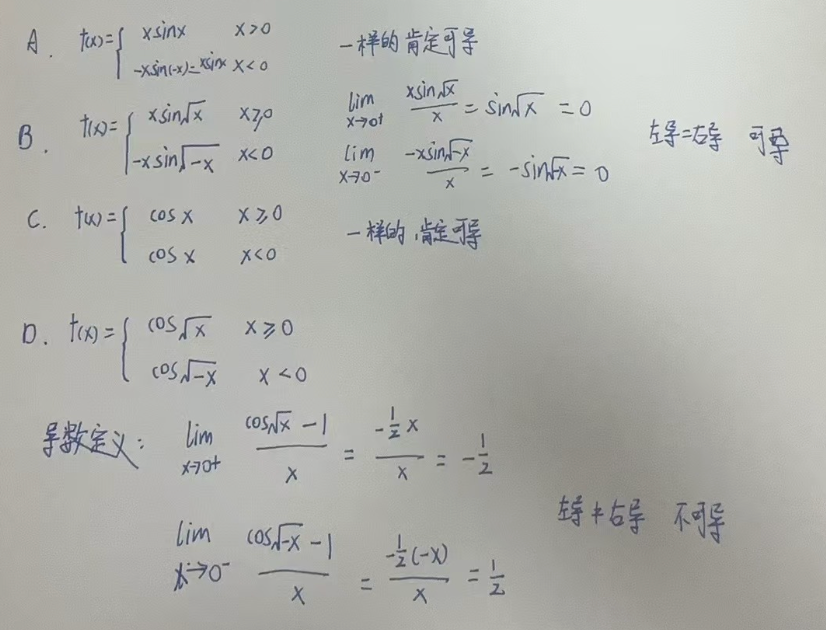 A. f(x)={ xsinx x>0
-xsin(-x)=xsinx x<0
一样的肯定可导
B. f(x)={ xsin√x x≥0
-xsin√-x x<0
lim x→0+ xsin√x / x = sin√x = 0
lim x→0- -xsin√-x / x = -sin√-x = 0
左导=右导 可导
C. f(x)={ cosx x≥0
cosx x<0
一样的,肯定可导
D. f(x)={ cos√x x≥0
cos√-x x<0
导数定义: lim x→0+ cos√x -1 / x = -1/2 x / x = -1/2
lim x→0- cos√-x -1 / x = -1/2(-x) / x = 1/2
左导≠右导 不可导